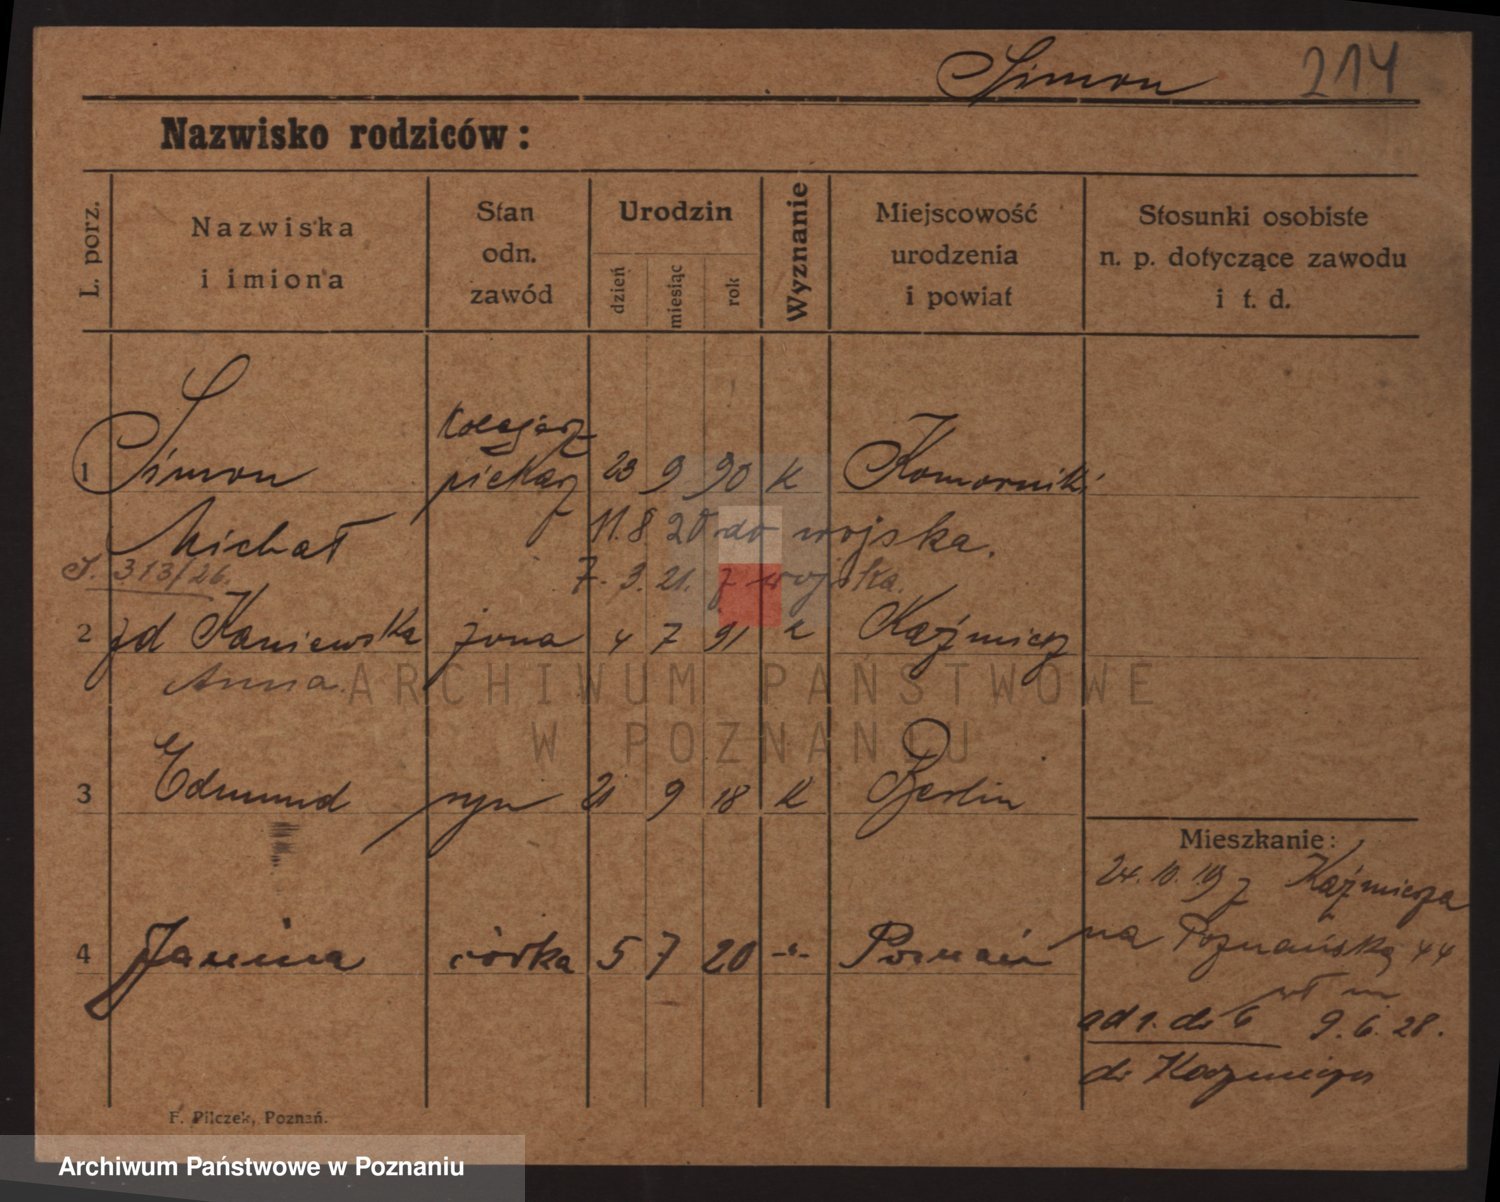 Simon 214
Nazwisko rodziców:
L. porz.
Nazwiska
i imiona
Stan
odn.
zawód
Urodzin
dzień
miesiąc
rok
Wyznanie
Miejscowość
urodzenia
i powiat
Stosunki osobiste
n. p. dotyczące zawodu
i t. d.
kolejarz
1 Simon piekarz 23 9 90 K Komorniki
Michał 11. 8 20 do wojska.
J. 313/26. 7. 3. 21. z wojska.
2 zd Kaniewska żona 4 7 91 K Kaźmierz
Anna
ARCHIWUM PAŃSTWOWE
W POZNANIU
3 Edmund syn 21 9 18 K Berlin
Mieszkanie:
24. 10. 19 z Kaźmierza
na Poznańską 44
4 Janina córka 5 7 20 -"- Poznań
ad 1. do 6 9. 6. 28.
do Kazmierza
F. Pilczek, Poznań.
Archiwum Państwowe w Poznaniu